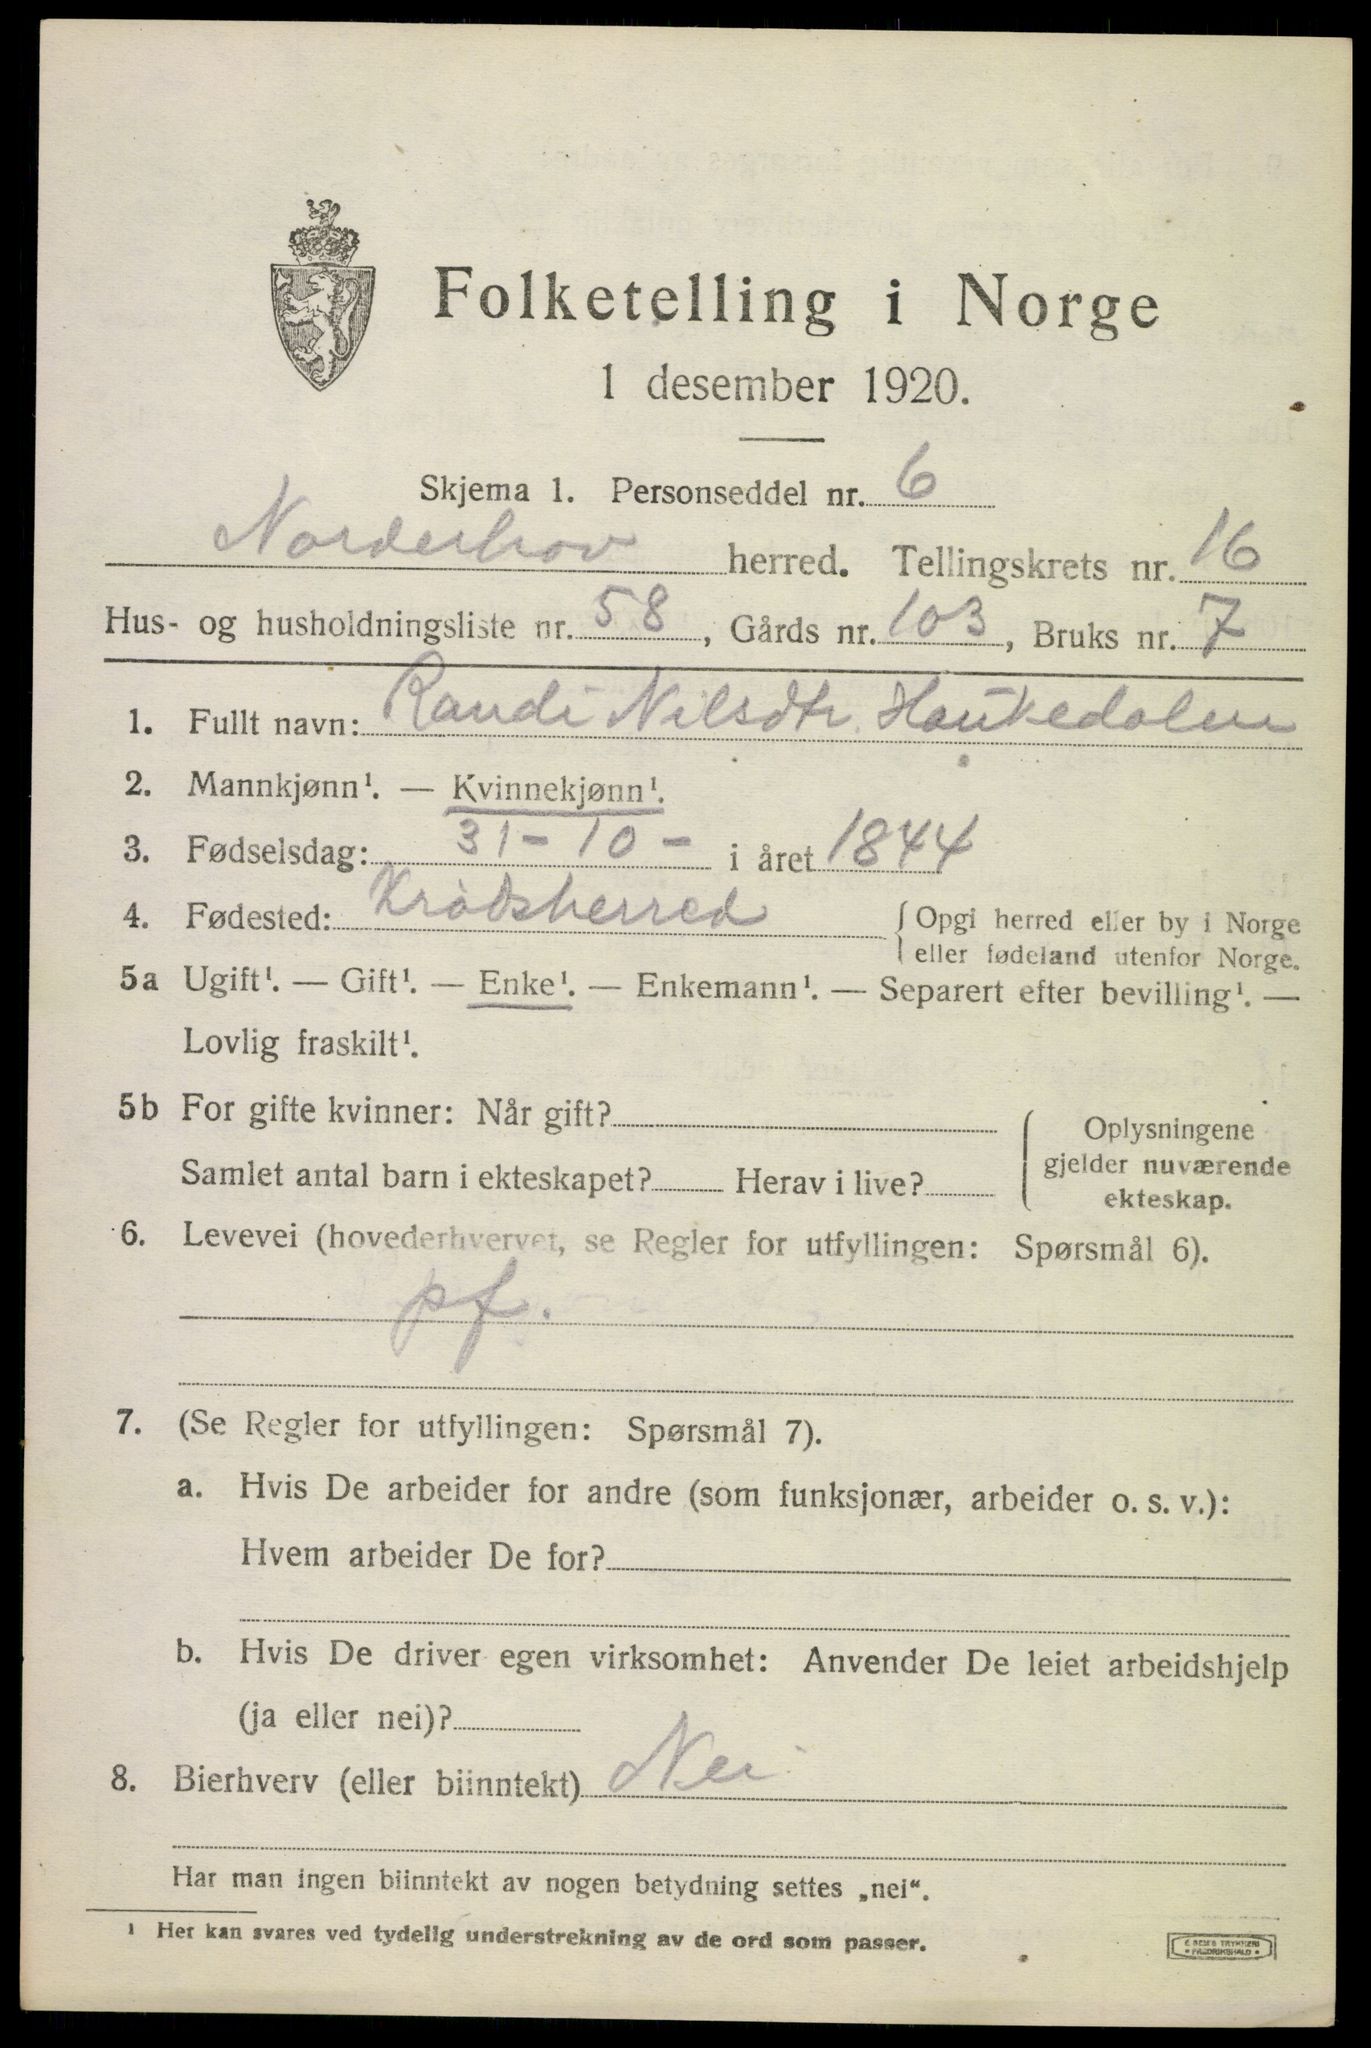 Folketelling i Norge
1 desember 1920.
Skjema 1. Personseddel nr. 6
Norderhov herred. Tellingskrets nr. 16
Hus- og husholdningsliste nr. 58, Gårds nr. 103, Bruks nr. 7
1. Fullt navn: Randi Nilsdtr. Haukedalen
2. Mannkjønn¹. — Kvinnekjønn¹.
3. Fødselsdag: 31 - 10 - i året 1844
4. Fødested: Krødsherred { Opgi herred eller by i Norge
eller fødeland utenfor Norge.
5a Ugift¹. — Gift¹. — Enke¹. — Enkemann¹. — Separert efter bevilling¹. —
Lovlig fraskilt¹.
5b For gifte kvinner: Når gift?
Samlet antal barn i ekteskapet? Herav i live?
Oplysningene
gjelder nuværende
ekteskap.
6. Levevei (hovederhvervet, se Regler for utfyllingen: Spørsmål 6).
pf.
7. (Se Regler for utfyllingen: Spørsmål 7).
a. Hvis De arbeider for andre (som funksjonær, arbeider o. s. v.):
Hvem arbeider De for?
b. Hvis De driver egen virksomhet: Anvender De leiet arbeidshjelp
(ja eller nei)?
8. Bierhverv (eller biinntekt) Nei
Har man ingen biinntekt av nogen betydning settes „nei“.
¹ Her kan svares ved tydelig understrekning av de ord som passer.
E. SEM'S TRYKKERI
• FREDRIKSHALD •